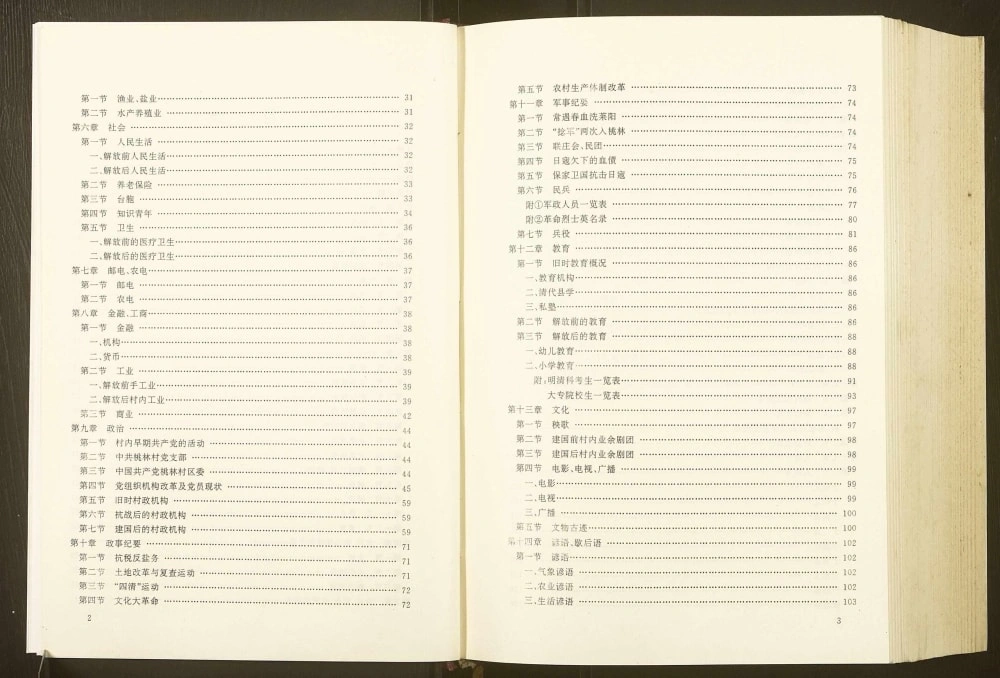 第一节 渔业、盐业 31
第二节 水产养殖业 31
第六章 社会 32
第一节 人民生活 32
一、解放前人民生活 32
二、解放后人民生活 32
第二节 养老保险 33
第三节 台胞 33
第四节 知识青年 34
第五节 卫生 36
一、解放前的医疗卫生 36
二、解放后的医疗卫生 36
第七章 邮电、农电 37
第一节 邮电 37
第二节 农电 37
第八章 金融、工商 38
第一节 金融 38
一、机构 38
二、货币 38
第二节 工业 39
一、解放前手工业 39
二、解放后村内工业 39
第三节 商业 42
第九章 政治 44
第一节 村内早期共产党的活动 44
第二节 中共桃林村党支部 44
第三节 中国共产党桃林村区委 44
第四节 党组织机构改革及党员现状 45
第五节 旧时村政机构 59
第六节 抗战后的村政机构 59
第七节 建国后的村政机构 59
第十章 政事纪要 71
第一节 抗税反盐务 71
第二节 土地改革与复查运动 71
第三节 “四清”运动 72
第四节 文化大革命 72
2
第五节 农村生产体制改革 73
第十一章 军事纪要 74
第一节 常遇春血洗莱阳 74
第二节 “捻军”两次入桃林 74
第三节 联庄会、民团 74
第四节 日寇欠下的血债 75
第五节 保家卫国抗击日寇 75
第六节 民兵 76
附①军政人员一览表 77
附②革命烈士英名录 80
第七节 兵役 81
第十二章 教育 86
第一节 旧时教育概况 86
一、教育机构 86
二、清代县学 86
三、私塾 86
第二节 解放前的教育 86
第三节 解放后的教育 88
一、幼儿教育 88
二、小学教育 88
附:明清科考生一览表 91
大专院校生一览表 93
第十三章 文化 97
第一节 秧歌 97
第二节 建国前村内业余剧团 98
第三节 建国后村内业余剧团 98
第四节 电影、电视、广播 99
一、电影 99
二、电视 99
三、广播 100
第五节 文物古迹 100
第十四章 谚语、歇后语 102
第一节 谚语 102
一、气象谚语 102
二、农业谚语 102
三、生活谚语 103
3